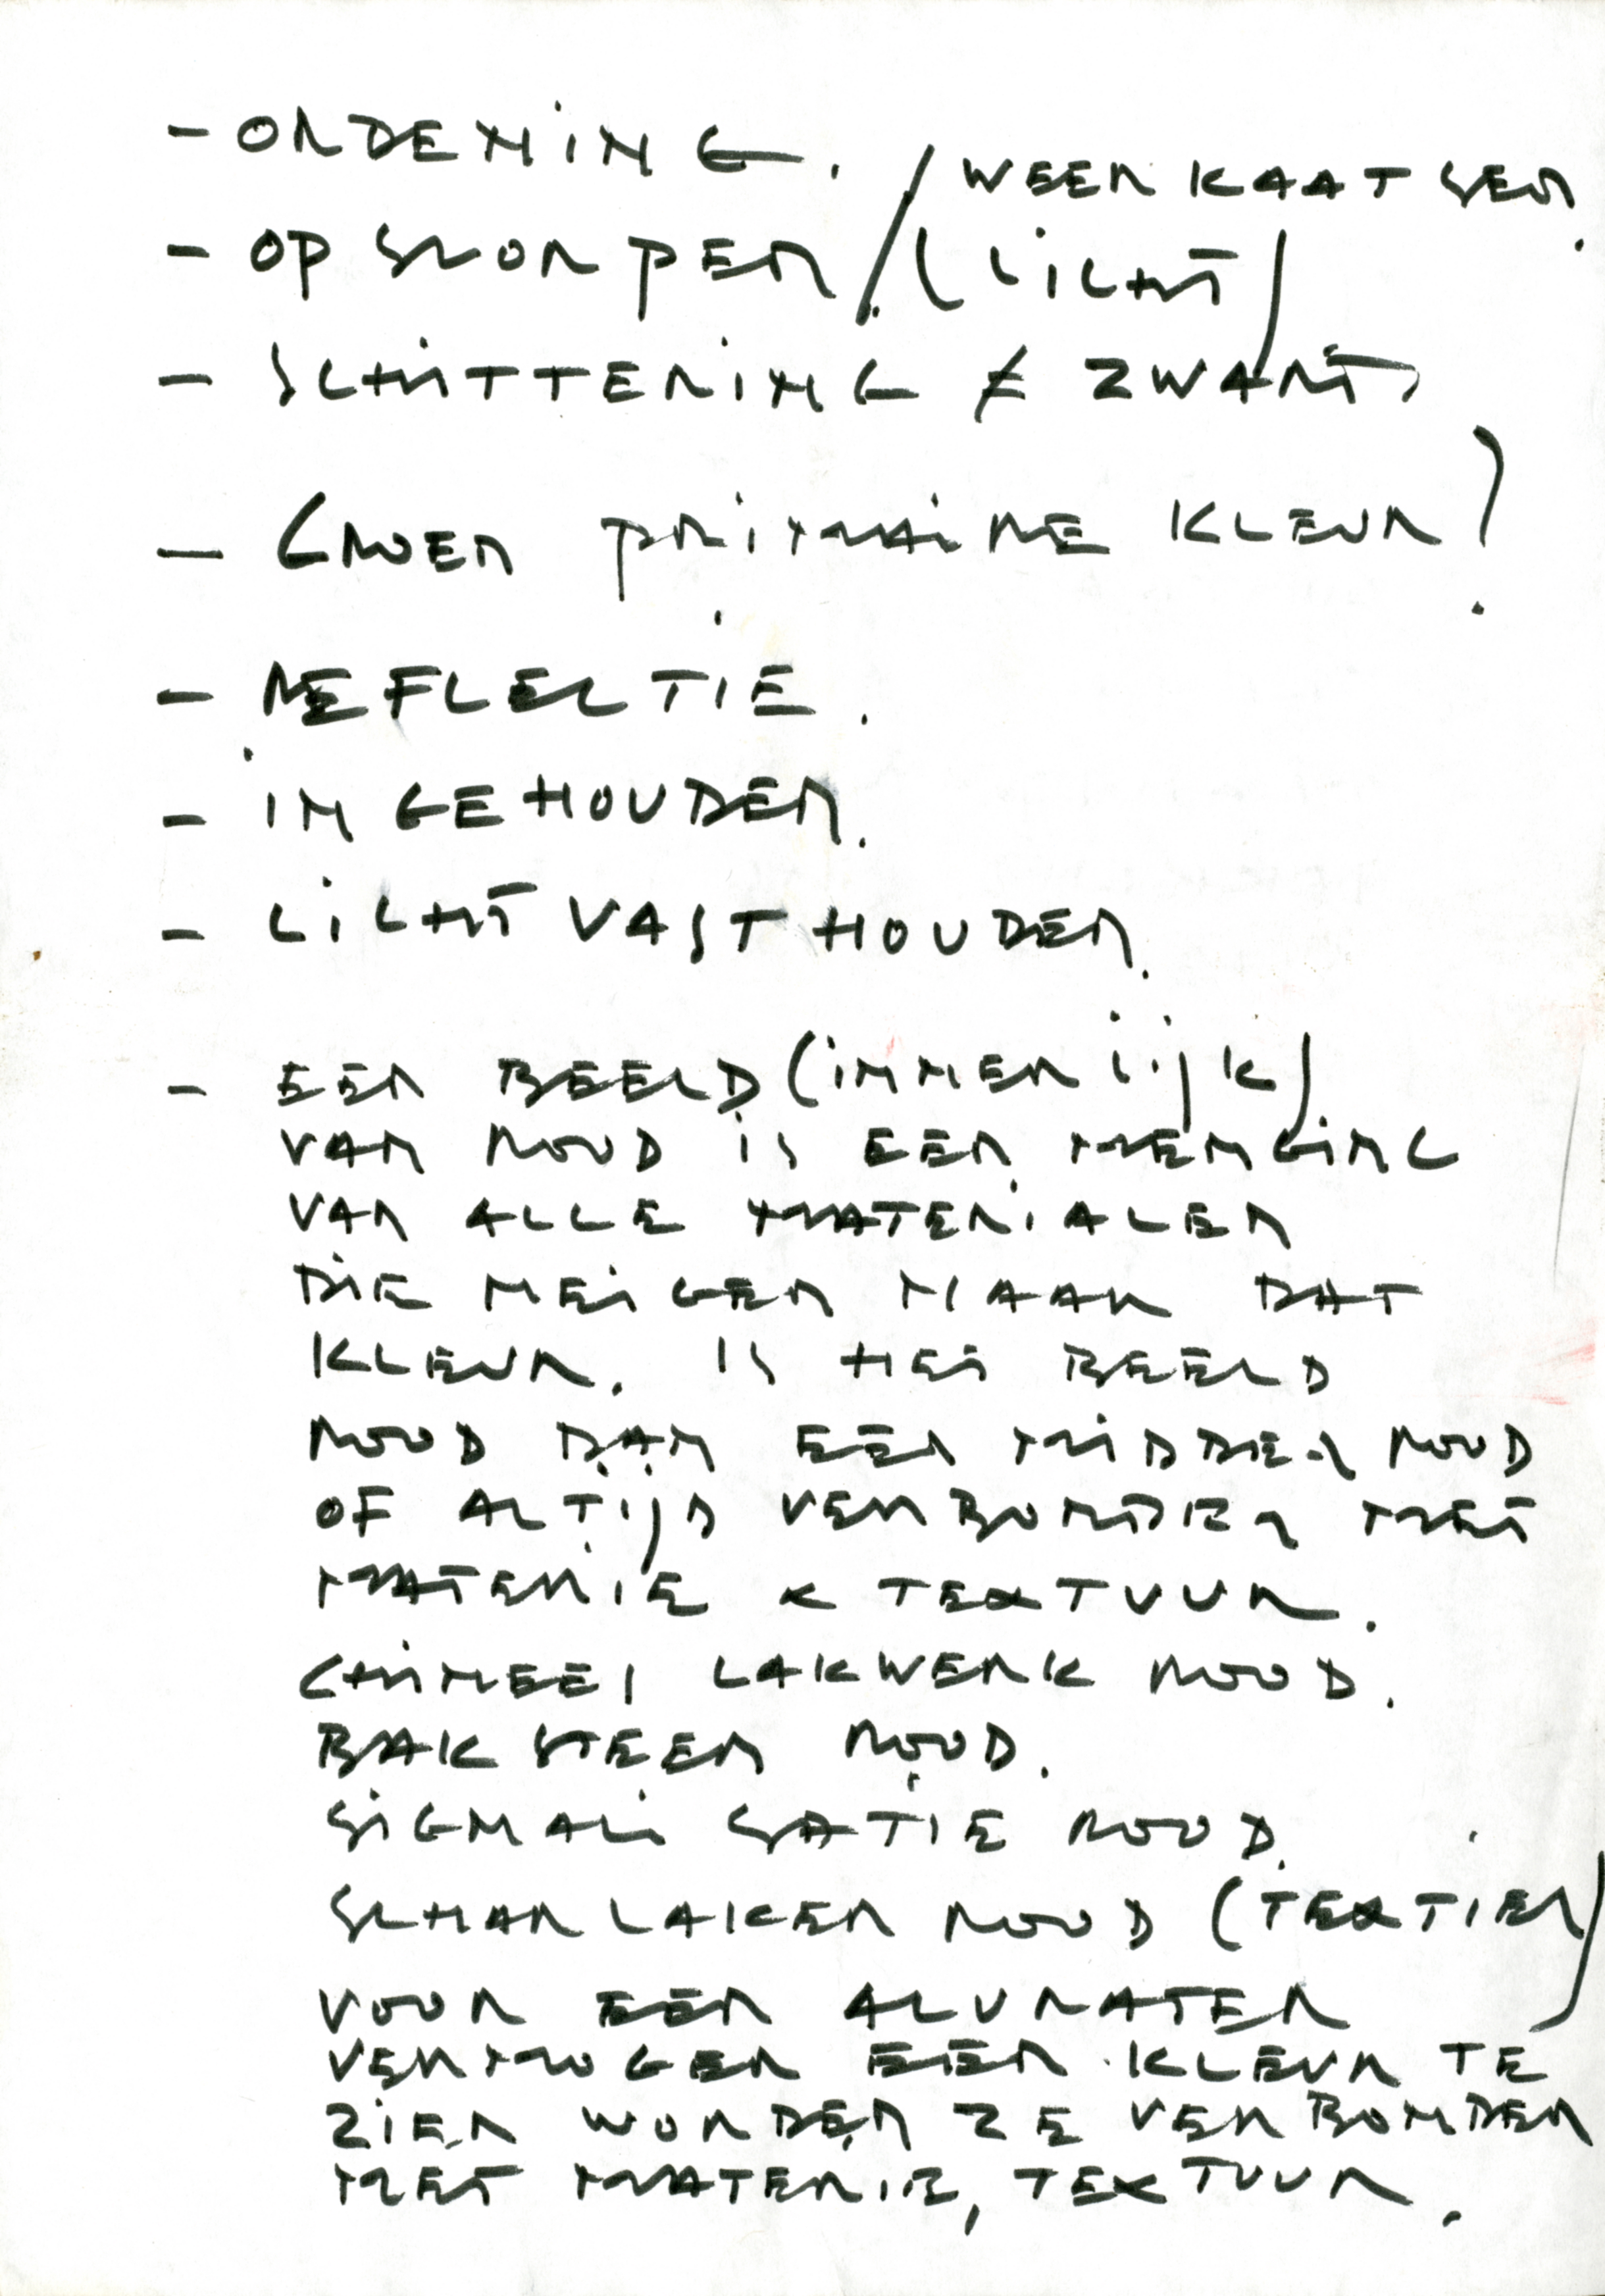 - ORDENING.
- OPSLORPEN / WEERKAATSEN. (LICHT)
- SCHITTERING & ZWART,
- GROEN PRIMAIRE KLEUR?
- REFLECTIE.
- INGEHOUDEN.
- LICHT VASTHOUDEN.
- EEN BEELD (INNERLIJK)
VAN ROOD IS EEN MENGING
VAN ALLE MATERIALEN
DIE NEIGEN NAAR DAT
KLEUR. IS HET BEELD
ROOD DAN EEN MIDDEN ROOD
OF ALTIJD VERBONDEN MET
MATERIE & TEXTUUR.
CHINEES LAKWERK ROOD.
BAKSTEEN ROOD.
SIGNALISATIE ROOD.
SCHARLAKEN ROOD (TEXTIEL)
VOOR EEN ACCURATER
VERMOGEN EEN KLEUR TE
ZIEN WORDEN ZE VERBONDEN
MET MATERIE, TEXTUUR.